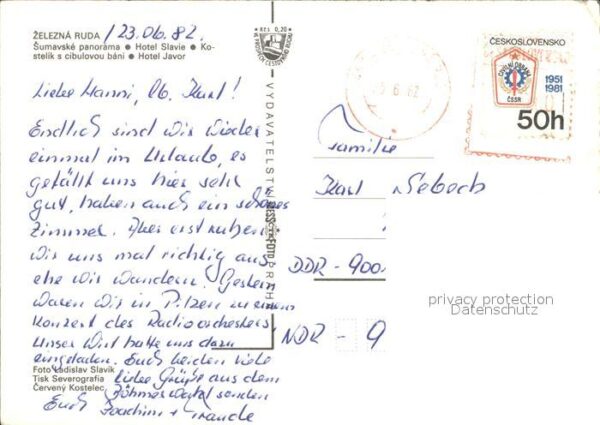 ŽELEZNÁ RUDA /23.06.82.
Šumavské panoráma • Hotel Slavie • Ko-
stelík s cibulovou bání • Hotel Javor
Liebe Hanni, lb. Karl!
Endlich sind wir wieder
einmal im Urlaub, es
gefällt uns hier sehr
gut, haben auch ein schönes
Zimmer. Aber erst ruhen
wir uns mal richtig aus
ehe wir wandern. Gestern
waren wir in Pilzen zu einem
Konzert des Radioorchesters
Unser Wirt hatte uns dazu
eingeladen. Euch beiden viele
liebe Grüße aus dem
Böhmerwald senden
Euch Joachim + Traude
Foto Ladislav Slavík
Tisk Severografia
Červený Kostelec
Kčs 0,20
VYDAVATELSTVÍ PRESSFOTO PRAHA
ČESKOSLOVENSKO
CIVILNÍ OBRANA
ČSSR
1951
1981
50h
6 82
Familie
Karl
DDR - 900
NDR - 9
privacy protection
Datenschutz